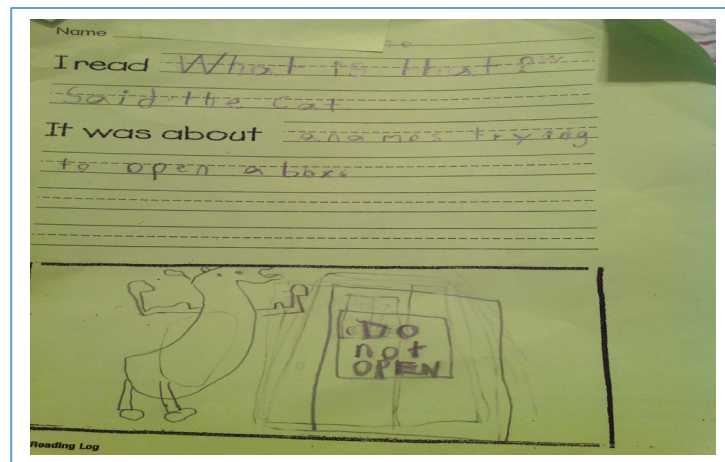 Name
I read What is that?"
said the cat
It was about anames trying
to open a boxs
DO
not
OPEN
Reading Log